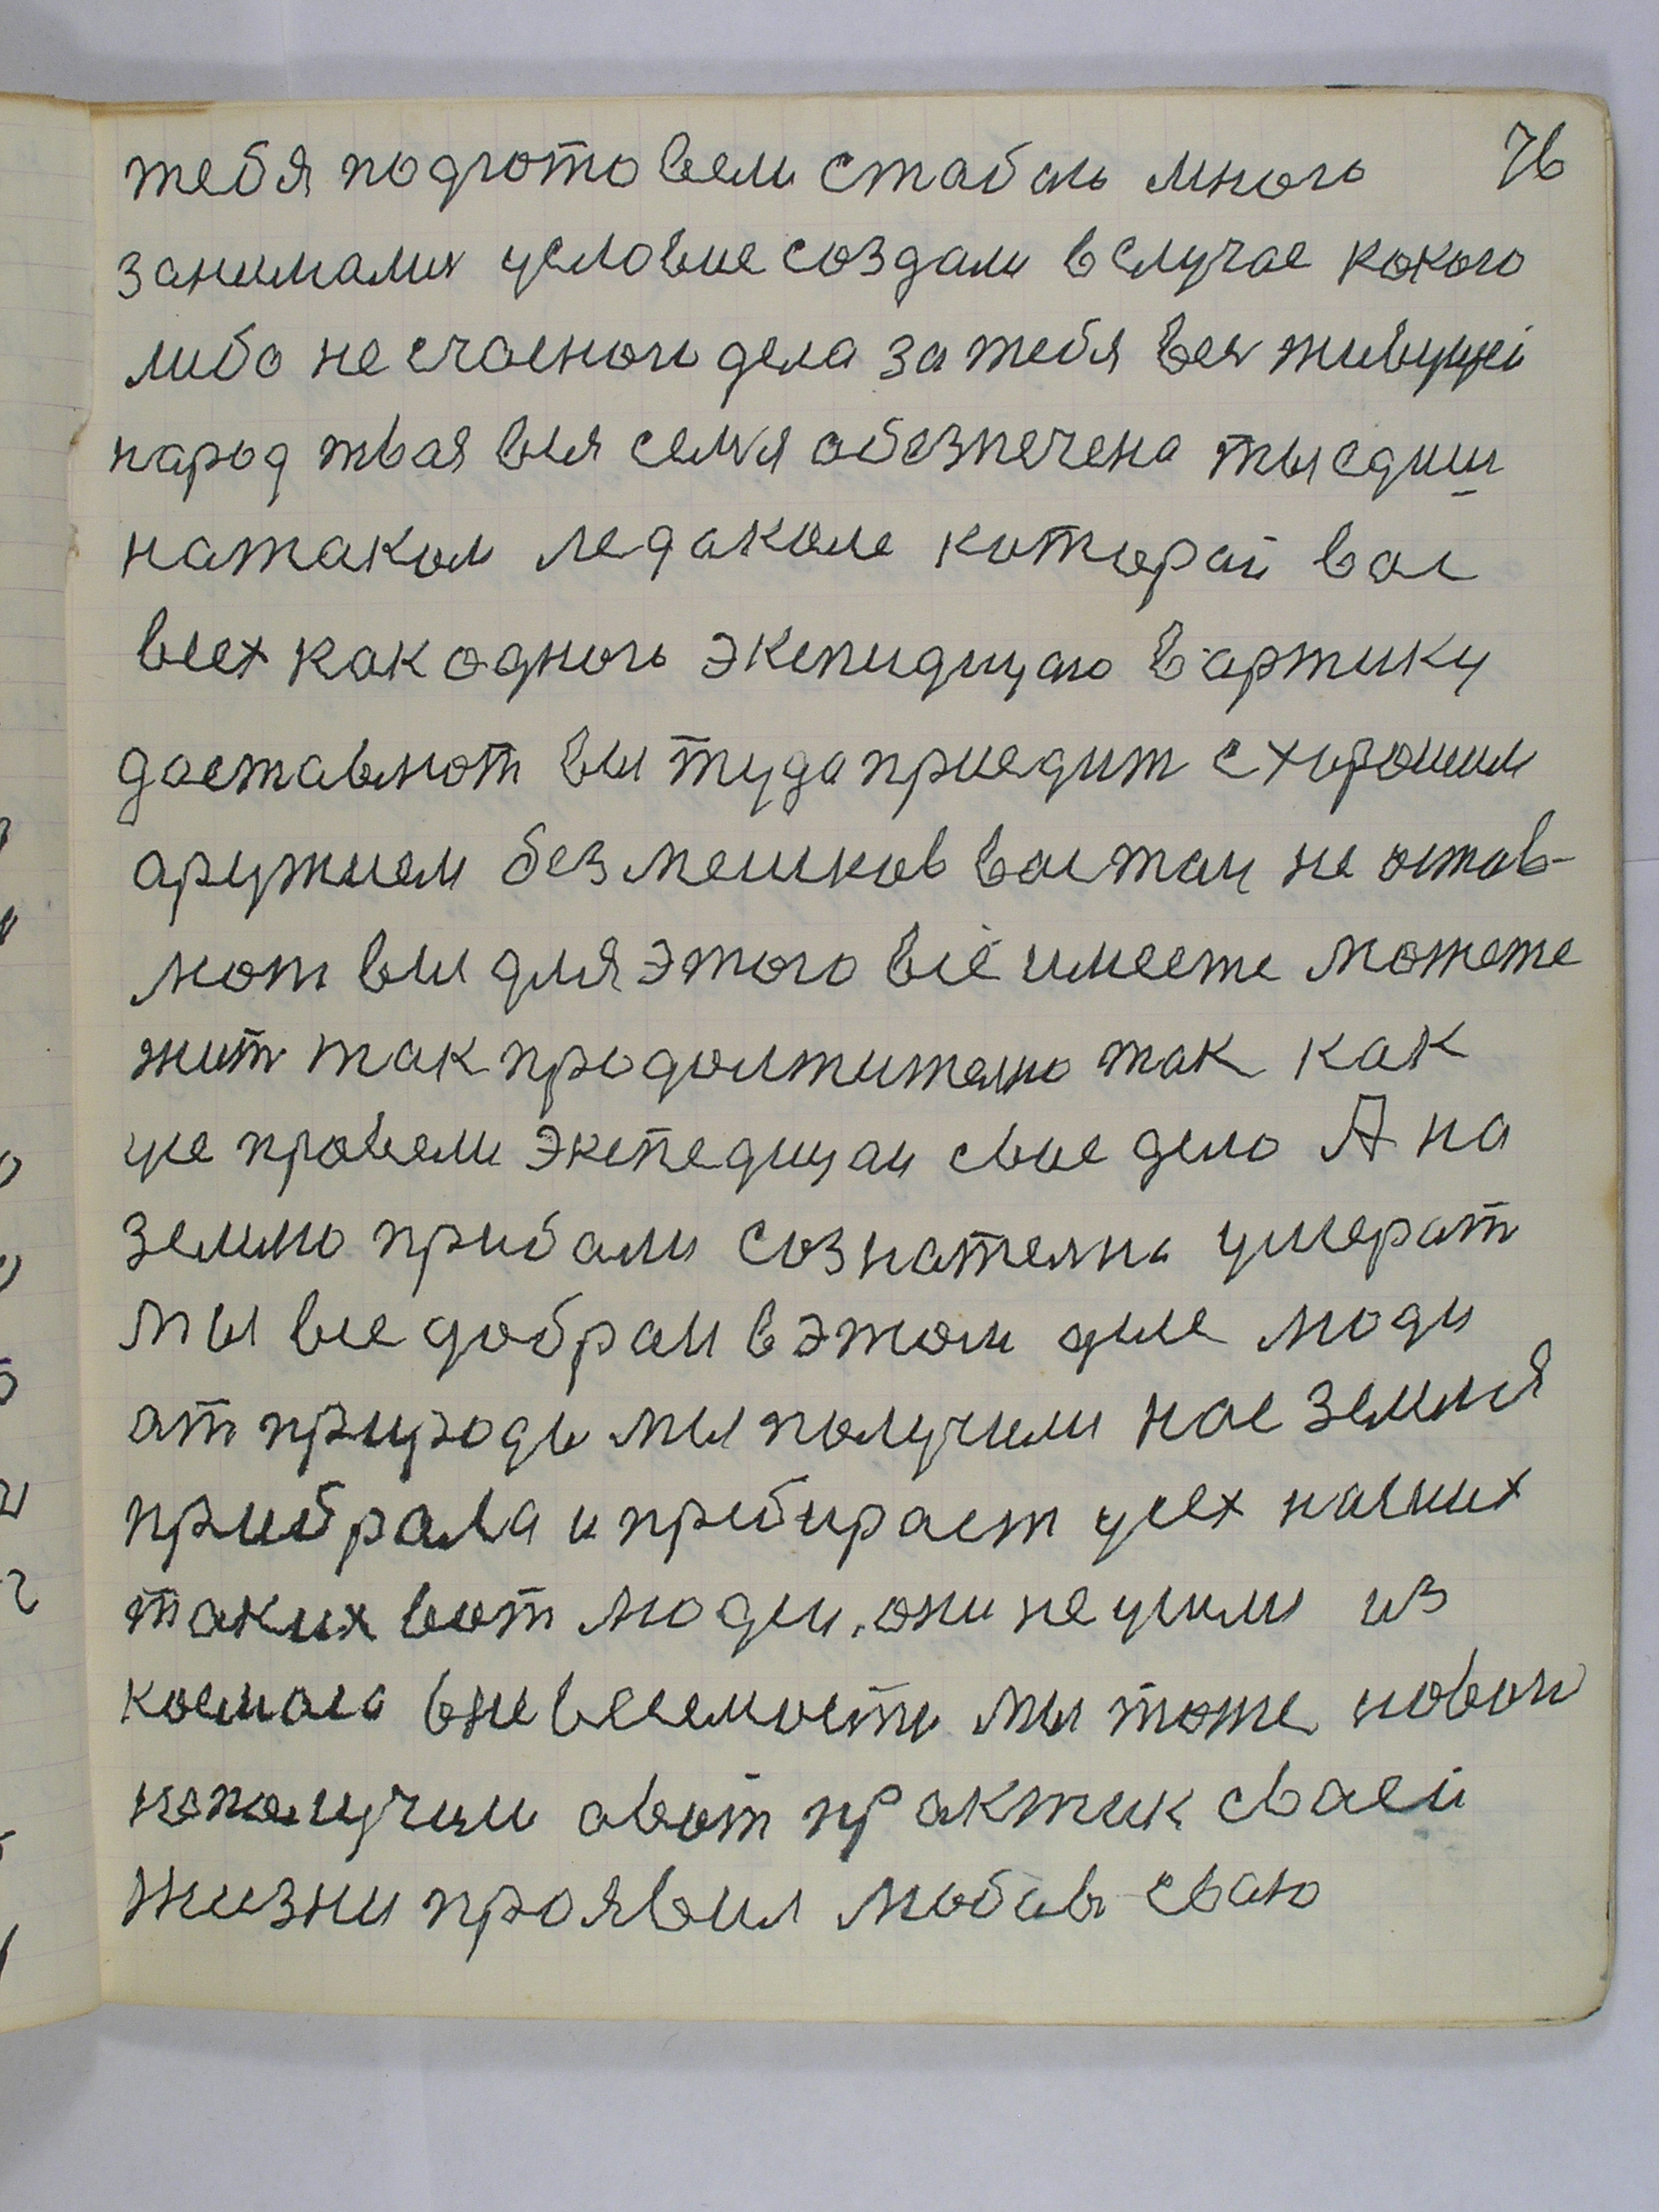 тебя подготовели стабою много 76
занималис условие создали вслучае кокого
либо не счасного дела за тебя вес живущи
народ твая вся семя обезпечена тыедиш
натаком ледаколе которай вас
всех какодного экспидицаю вартику
даставлют вы тудаприедит схорошим
аружием безмешков вастам не остав-
лют вы дляэтого всё имеете можете
жит такпродолжително так как
уже провели экспедицаи свае дело А на
землю прибали сознателно умерат
мы все добраи вэтом деле люди
ат природы мы получили нас земля
прибрала и прибирает усех нашех
таких вот люди, они неушли из
космаса вневесемости мы тоже новои
неполучим авот практик сваей
жизни проявил любовь сваю